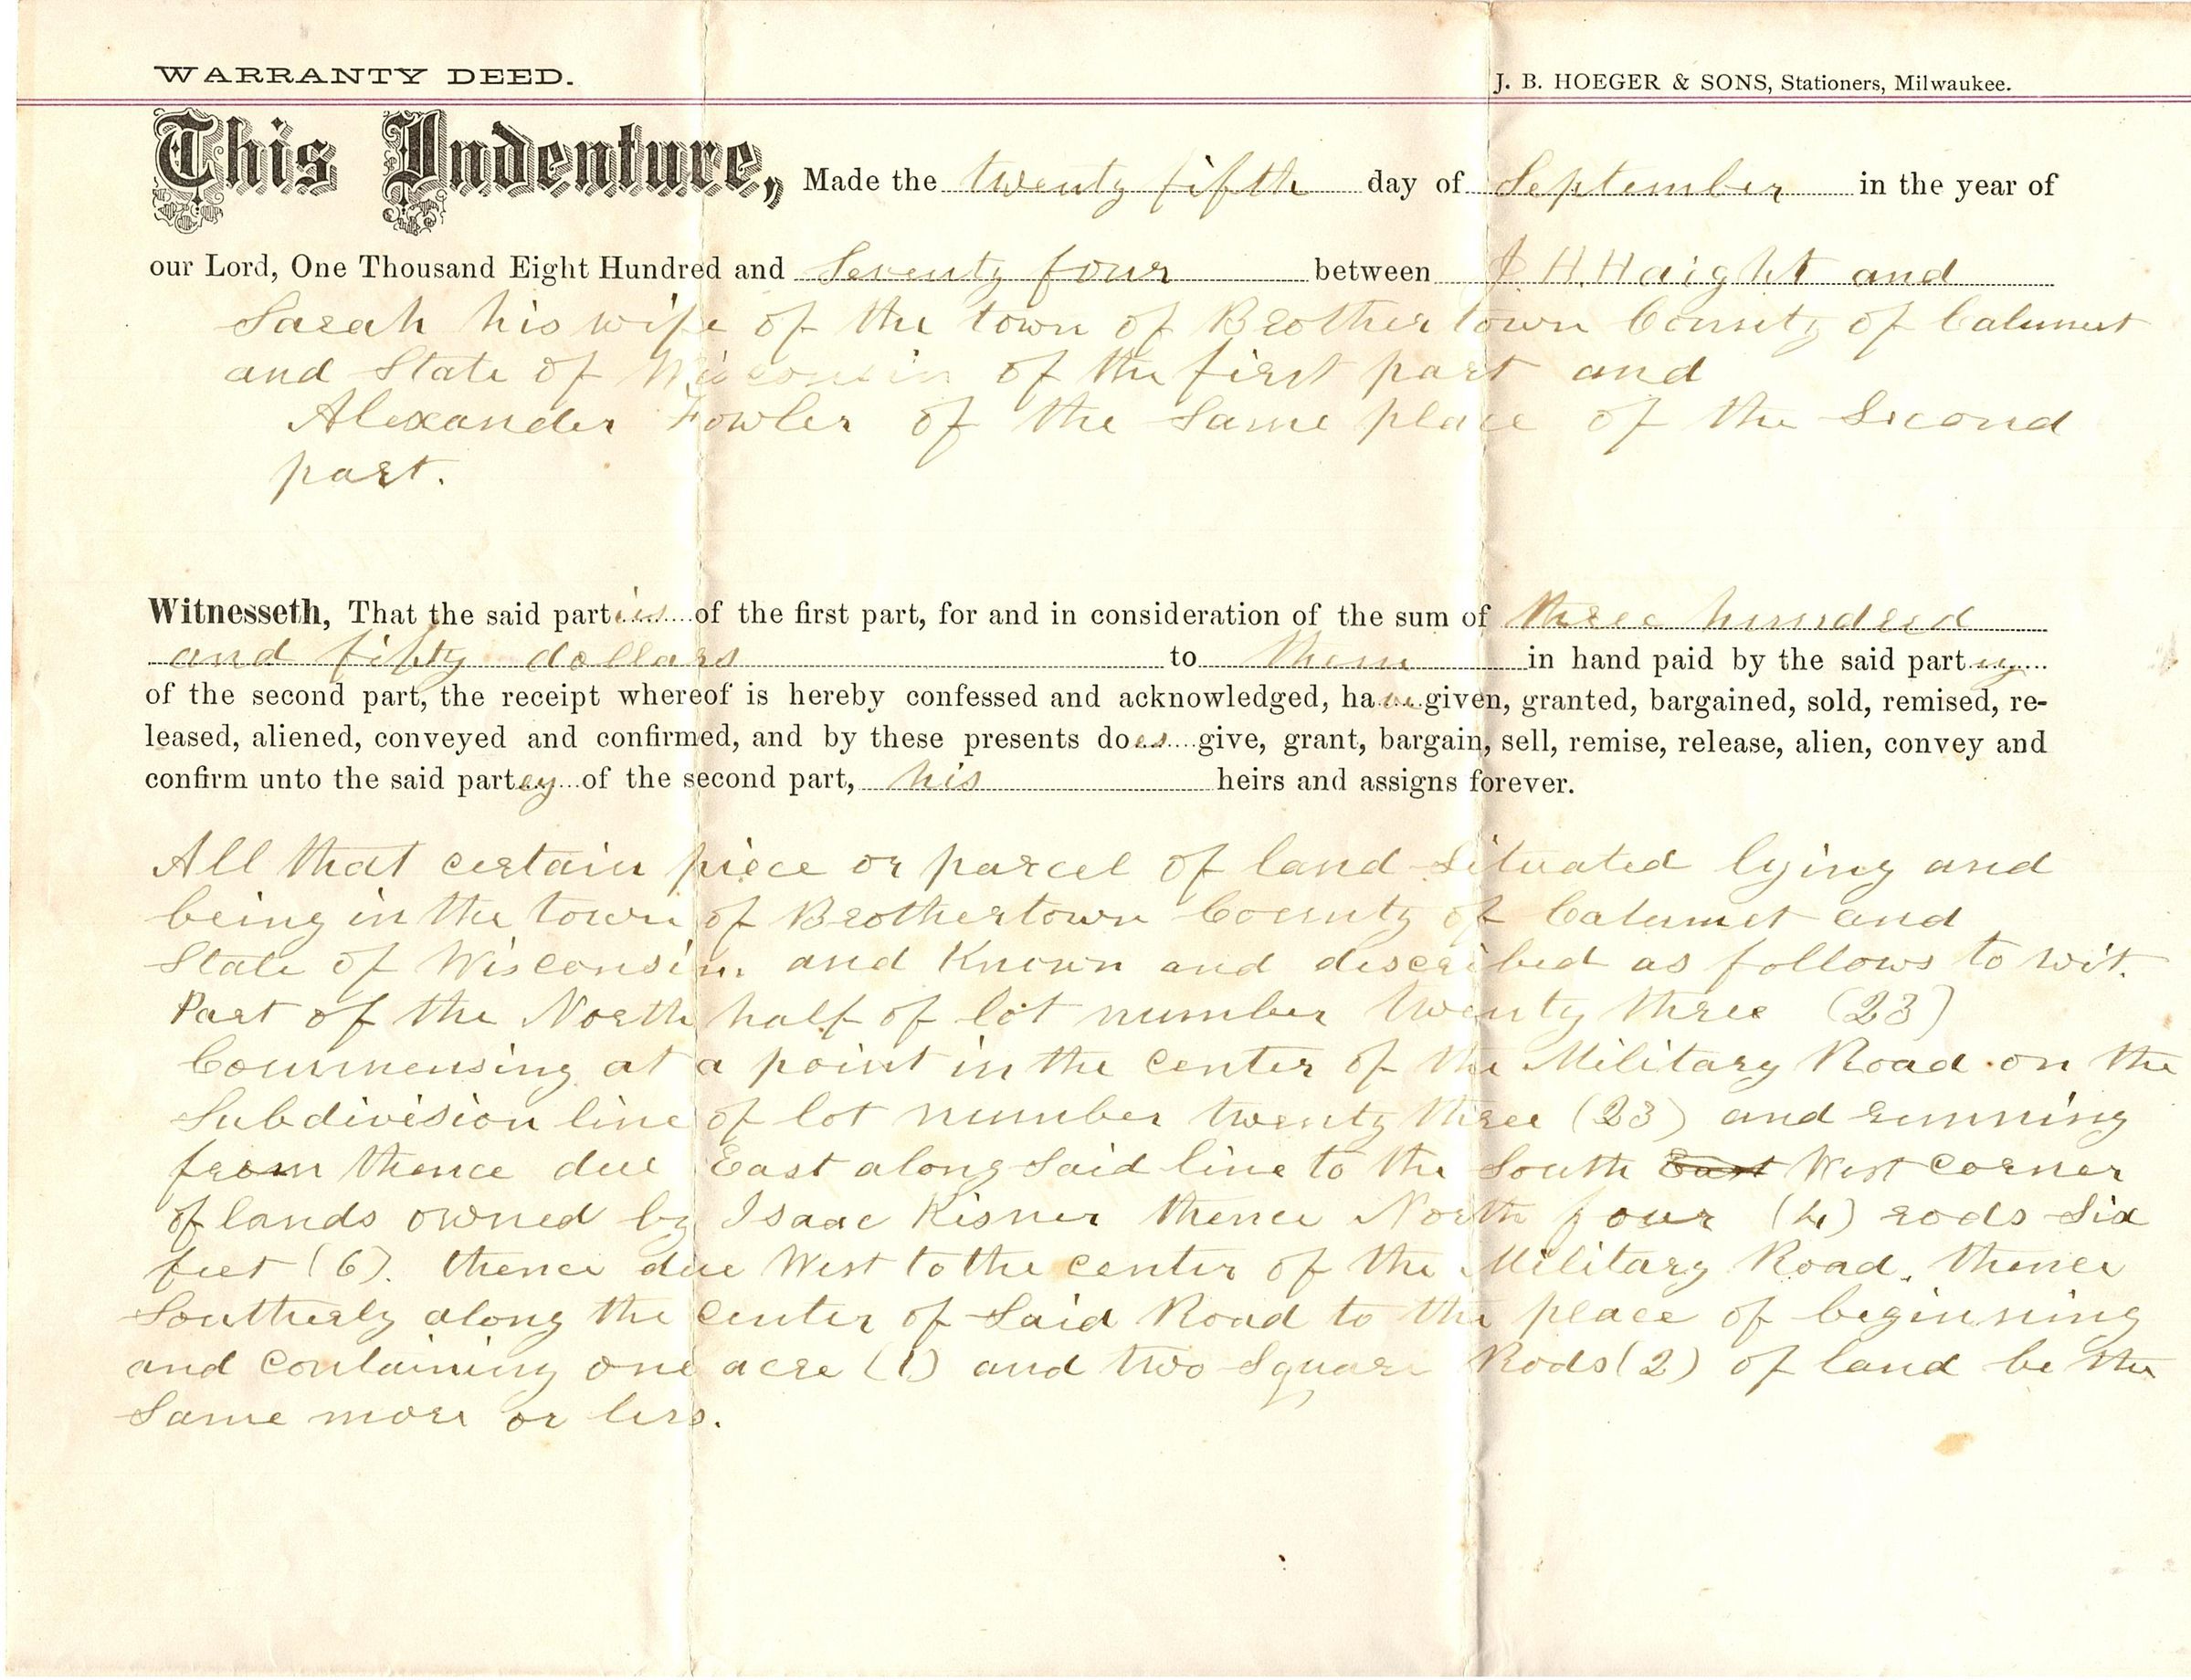 WARRANTY DEED.
J. B. HOEGER & SONS, Stationers, Milwaukee.
This Indenture, Made the twenty fifth day of September in the year of
our Lord, One Thousand Eight Hundred and Seventy four between J H. Haight and
Sarah his wife of the town of Brothertown County of Calumet
and State of Wisconsin of the first part and
Alexander Fowler of the Same place of the Second
part.
Witnesseth, That the said parties of the first part, for and in consideration of the sum of three hundred
and fifty dollars to them in hand paid by the said party
of the second part, the receipt whereof is hereby confessed and acknowledged, have given, granted, bargained, sold, remised, re-
leased, aliened, conveyed and confirmed, and by these presents does give, grant, bargain, sell, remise, release, alien, convey and
confirm unto the said partey of the second part, his heirs and assigns forever.
All that certain piece or parcel of land Situated lying and
being in the town of Brothertown County of Calumet and
State of Wisconsin. and Known and described as follows to wit.
Part of the North half of lot number twenty three (23)
Commensing at a point in the center of the Military Road on the
Subdivision line of lot number twenty three (23) and running
from thence due East along Said line to the South East West corner
of lands owned by Isaac Kisner thence North four (4) rods Six
feet (6). thence due West to the center of the Military Road. thence
Southerly along the center of Said Road to the place of beginning
and containing one acre (1) and two Square Rods (2) of land be the
Same more or less.